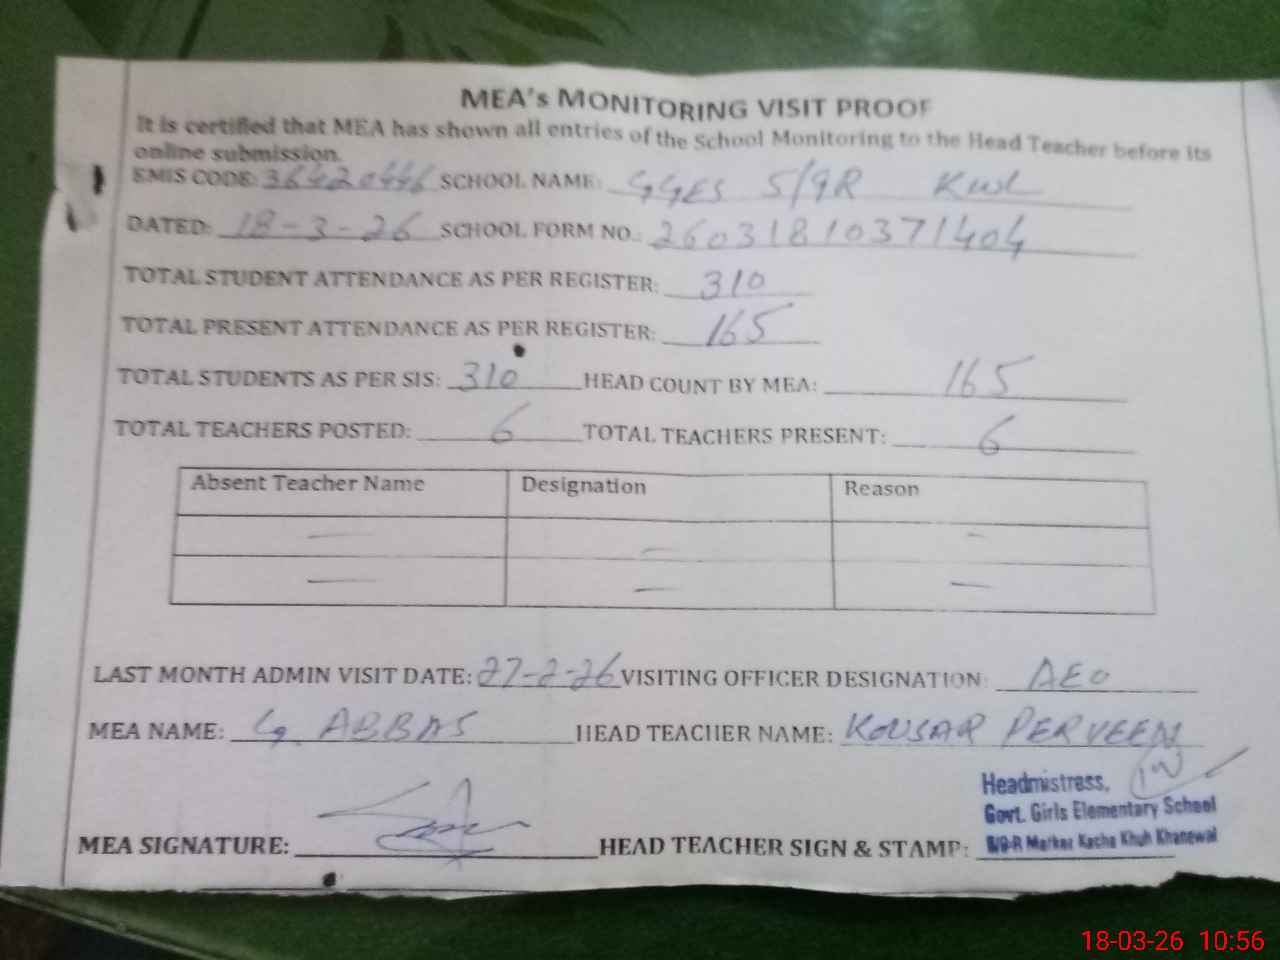 MEA's MONITORING VISIT PROOF
It is certified that MEA has shown all entries of the School Monitoring to the Head Teacher before its
online submission.
EMIS CODE: 36420446 SCHOOL NAME: GGES 5/9R Kwl
DATED: 18-3-26 SCHOOL FORM NO.: 26031810371404
TOTAL STUDENT ATTENDANCE AS PER REGISTER: 310
TOTAL PRESENT ATTENDANCE AS PER REGISTER: 165
TOTAL STUDENTS AS PER SIS: 310 HEAD COUNT BY MEA: 165
TOTAL TEACHERS POSTED: 6 TOTAL TEACHERS PRESENT: 6
Absent Teacher Name Designation Reason
— — —
— — —
LAST MONTH ADMIN VISIT DATE: 27-2-26 VISITING OFFICER DESIGNATION: AEO
MEA NAME: G. ABBAS HEAD TEACHER NAME: KOUSAR PERVEEN
MEA SIGNATURE: HEAD TEACHER SIGN & STAMP:
Headmistress,
Govt. Girls Elementary School
Kacha Khuh Khanewal
18-03-26 10:56